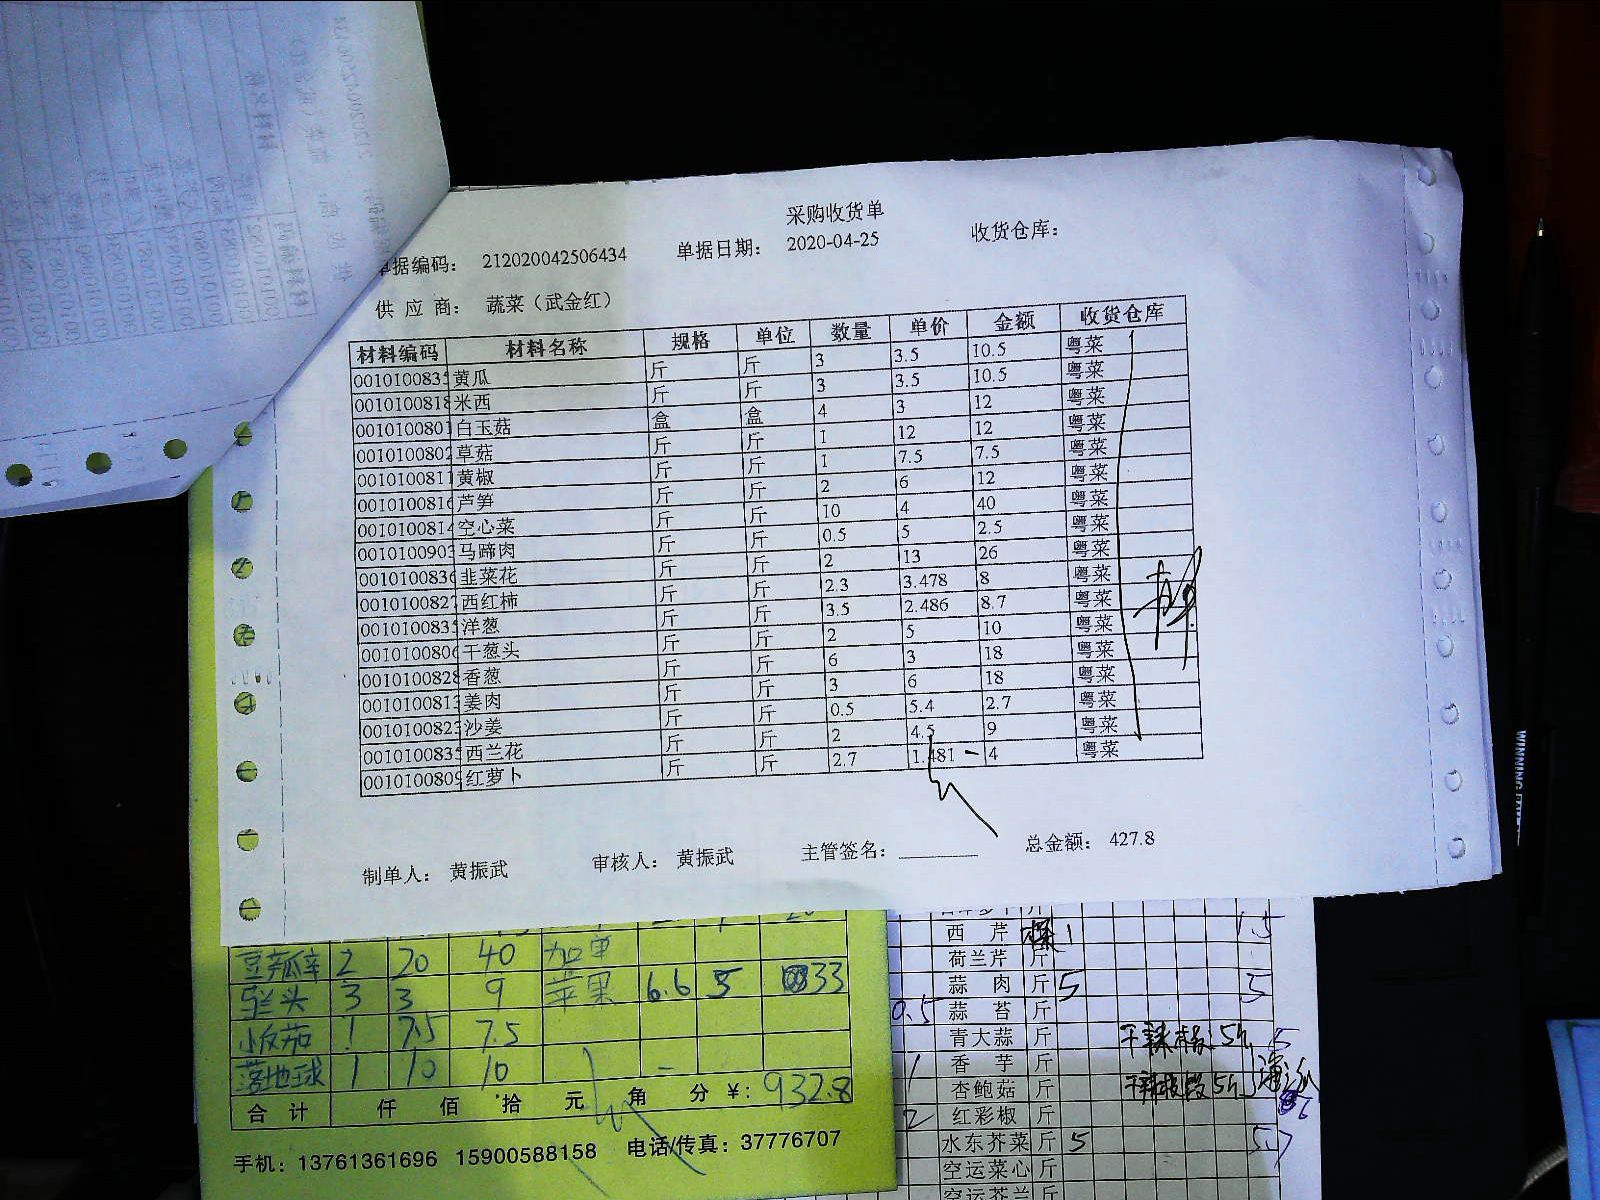 采购收货单
单据编码： 212020042506434 单据日期： 2020-04-25 收货仓库：
供 应 商： 蔬菜（武金红）
材料编码 材料名称 规格 单位 数量 单价 金额 收货仓库
001010083 黄瓜 斤 斤 3 3.5 10.5 粤菜
001010081 米西 斤 斤 3 3.5 10.5 粤菜
001010080 白玉菇 盒 盒 4 3 12 粤菜
001010080 草菇 斤 斤 1 12 12 粤菜
001010081 黄椒 斤 斤 1 7.5 7.5 粤菜
001010081 芦笋 斤 斤 2 6 12 粤菜
001010081 空心菜 斤 斤 10 4 40 粤菜
001010090 马蹄肉 斤 斤 0.5 5 2.5 粤菜
001010083 韭菜花 斤 斤 2 13 26 粤菜
001010082 西红柿 斤 斤 2.3 3.478 8 粤菜
001010083 洋葱 斤 斤 3.5 2.486 8.7 粤菜
001010080 干葱头 斤 斤 2 5 10 粤菜
001010082 香葱 斤 斤 6 3 18 粤菜
001010081 姜肉 斤 斤 3 6 18 粤菜
001010082 沙姜 斤 斤 0.5 5.4 2.7 粤菜
001010083 西兰花 斤 斤 2 4.5 9 粤菜
001010080 红萝卜 斤 斤 2.7 1.481 4 粤菜
制单人： 黄振武 审核人： 黄振武 主管签名： 总金额： 427.8
2 20 40 加单
3 3 9 苹果 6.6 5 33
1 7.5 7.5
落地球 1 10 10
合 计 仟 佰 拾 元 角 分 ¥: 932.8
手机：13761361696 15900588158 电话/传真：37776707
西 芹 1 1.5
荷兰芹 斤
蒜 肉 斤 5 5
0.5 蒜 苔 斤
青大蒜 斤
1 香 芋 斤
杏鲍菇 斤
2 红彩椒 斤
水东芥菜 斤 5 5.7
空运菜心 斤
空运芥兰 斤